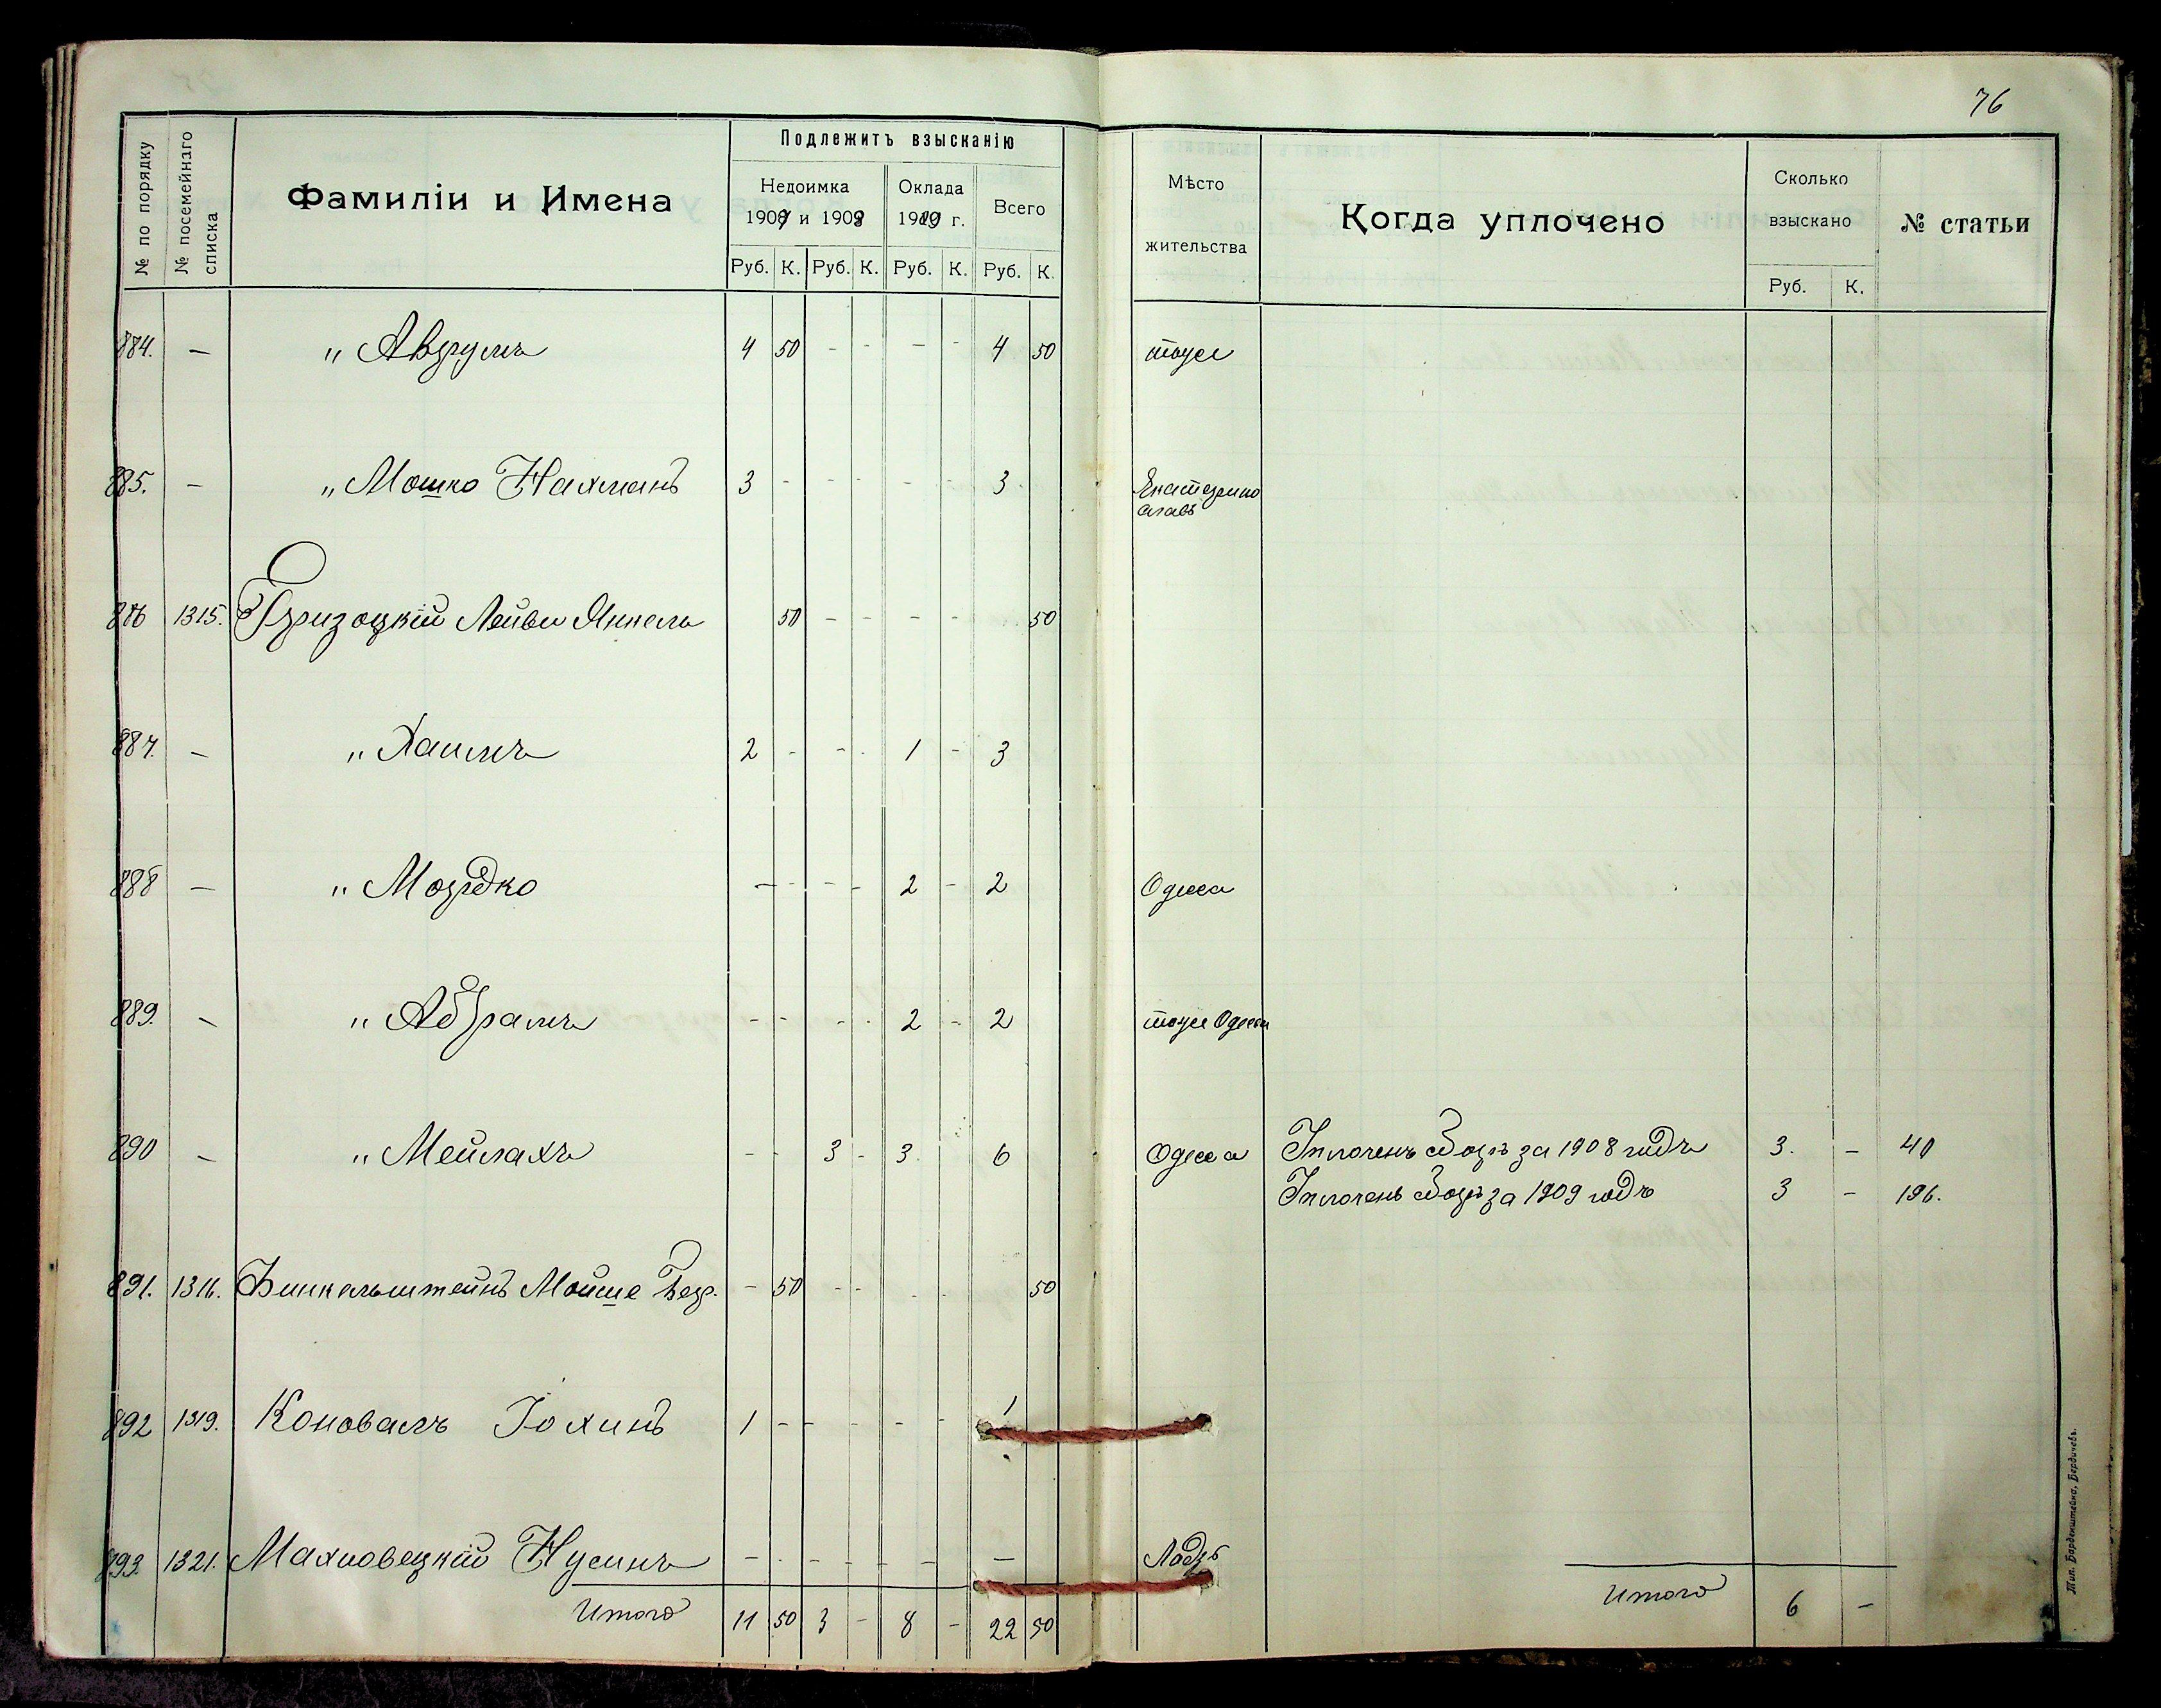 76
№ по порядку
№ посемейнаго списка
Фамиліи и Имена
Подлежитъ взысканію
Недоимка
1907 и 1908
Оклада
1909 г.
Всего
Руб. К. Руб. К. Руб. К. Руб. К.
Мѣсто
жительства
Когда уплочено
Сколько
взыскано
Руб. К.
№ статьи
884. — " Аврумъ 4 50 - - - - 4 50 тоже
885. — " Мошко Нахманъ 3 - - - - - 3 - Екатерино
славъ
886 1315. Гризоцкій Лейви Янкель 50 - - - - 50
887. — " Хаимъ 2 - - - 1 - 3
888 — " Мордко — - - - 2 - 2 Одесса
889. — " Абрамъ - - - - 2 - 2 тоже Одесса
890 — " Мейлахъ - - 3 - 3. 6 Одесса Уплоченъ сборъ за 1908 годъ 3. — 40
Уплоченъ сборъ за 1909 годъ 3 — 196.
891. 1316. Финкельштейнъ Мойше Бер. - 50 - - - - 50
892 1319. Коновалъ Іохинъ 1 - - - - 1
893. 1321. Махновецкій Нусинъ — - - - - — — Лодзь
Итого 11 50 3 — 8 — 22 50
Итого 6 —
Тип. Барденштейна, Бердичевъ.